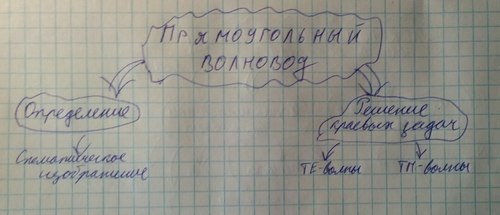 Прямоугольный
волновод
Определение
Решение
краевых задач
Схематическое
изображение
TE-волны
TM-волны